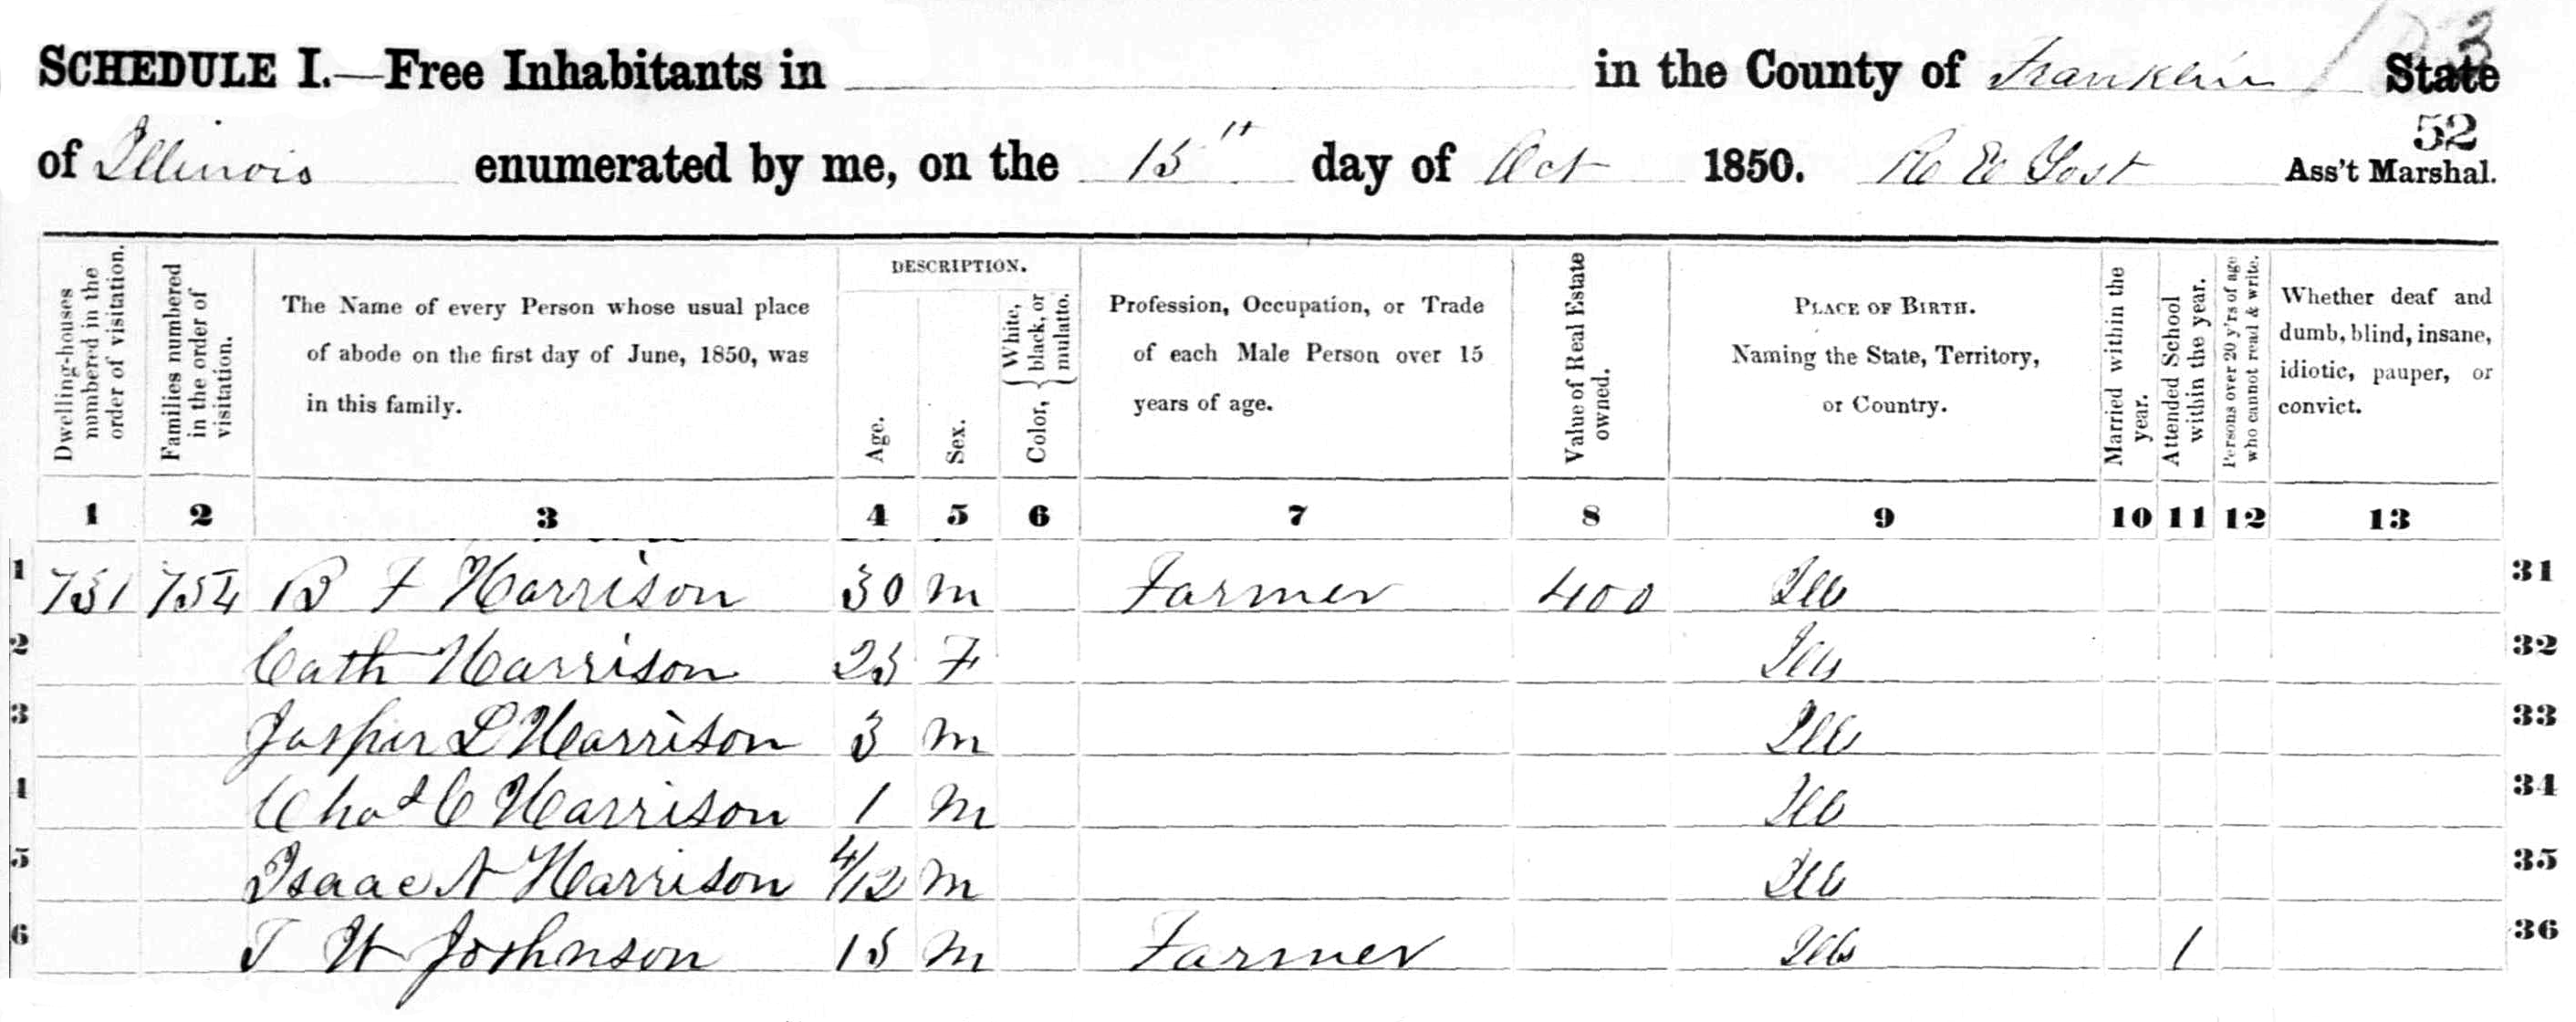 123
SCHEDULE I.—Free Inhabitants in in the County of Franklin State
52
of Illinois enumerated by me, on the 15" day of Oct 1850. R E Yost Ass't Marshal.
Dwelling-houses numbered in the order of visitation.
Families numbered in the order of visitation.
The Name of every Person whose usual place
of abode on the first day of June, 1850, was
in this family.
DESCRIPTION.
Age.
Sex.
Color, { White, black, or mulatto.
Profession, Occupation, or Trade
of each Male Person over 15
years of age.
Value of Real Estate owned.
PLACE OF BIRTH.
Naming the State, Territory,
or Country.
Married within the year.
Attended School within the year.
Persons over 20 y'rs of age who cannot read & write.
Whether deaf and
dumb, blind, insane,
idiotic, pauper, or
convict.
1 2 3 4 5 6 7 8 9 10 11 12 13
1 751 754 B F Harrison 30 m Farmer 400 Ills 31
2 Cath Harrison 25 F Ills 32
3 Jasper L Harrison 3 m Ills 33
4 Chas C Harrison 1 m Ills 34
5 Isaac N Harrison 4/12 m Ills 35
6 T W Joshnson 15 m Farmer Ills 1 36